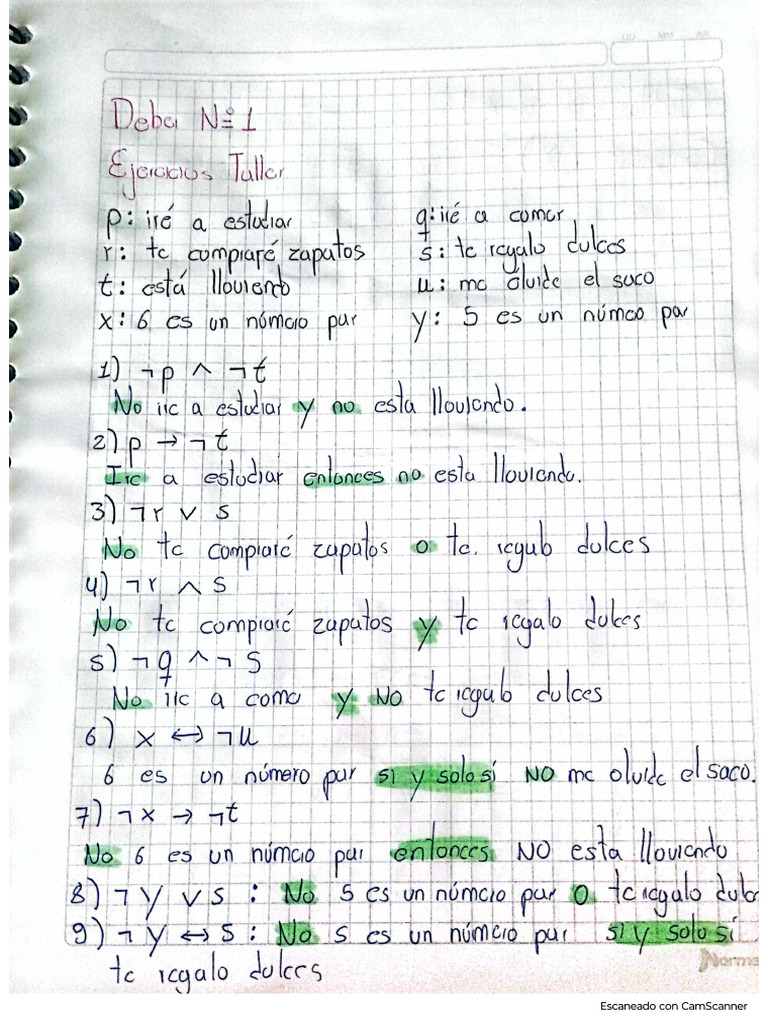 DD MM AA
Deber Nº 1
Ejercicios Taller
p: iré a estudiar q: iré a comer
r: te compraré zapatos s: te regalo dulces
t: está lloviendo u: me olvide el saco
x: 6 es un número par y: 5 es un número par
1) ¬p ∧ ¬t
No ire a estudiar y no esta lloviendo.
2) p → ¬t
Ire a estudiar entonces no esta lloviendo.
3) ¬r ∨ s
No te compraré zapatos o te regalo dulces
4) ¬r ∧ s
No te compraré zapatos y te regalo dulces
5) ¬q ∧ ¬s
No ire a comer y NO te regalo dulces
6) x ↔ ¬u
6 es un número par si y solo si NO me olvide el saco.
7) ¬x → ¬t
No 6 es un número par entonces NO esta lloviendo
8) ¬y ∨ s : No 5 es un número par o te regalo dulc
9) ¬y ↔ s : No 5 es un número par si y solo si
te regalo dulces
Norma
Escaneado con CamScanner